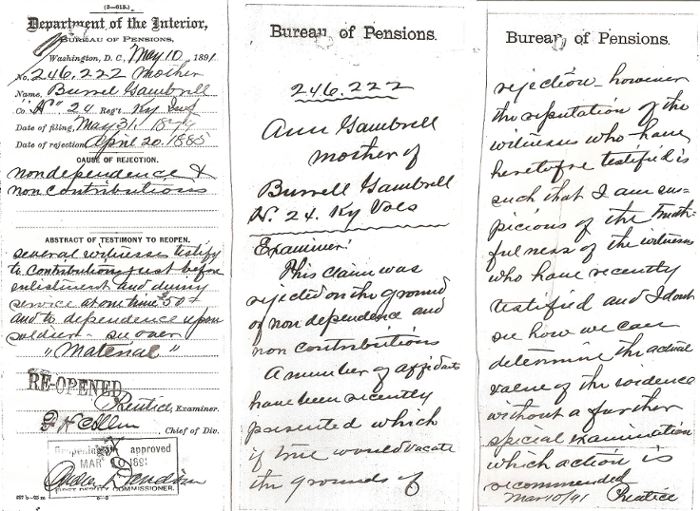 (3—615.)
Department of the Interior,
BUREAU OF PENSIONS,
Washington, D. C., May 10, 1891
No. 246.222 Mother
Name, Burrel Gambrell
Co. "H" 24 Reg't Ky Inf
Date of filing, May 31, 18
Date of rejection, April 20. 1885
CAUSE OF REJECTION.
nondependence &
non contributions
ABSTRACT OF TESTIMONY TO REOPEN.
several witnesses testify
to contributions just before
enlistment and during
service at one time $50
and to dependence upon
soldier - see over
"Material"
RE-OPENED
Prentice, Examiner.
Chief of Div.
Reopening approved
MAR 10 189
DEPUTY COMMISSIONER.
Bureau of Pensions.
246.222
Ann Gambrell
mother of
Burrell Gambrell
H. 24. Ky Vols
Examiner:
This claim was
rejected on the ground
of non dependence and
non contributions
A number of affidavits
have been recently
presented which
if true would vacate
the grounds of
Bureau of Pensions.
rejection - however
the reputation of the
witnesses who have
heretofore testified is
such that I am sus-
picious of the truth-
fulness of the witnesses
who have recently
testified and I dont
see how we can
determine the actual
value of the evidence
without a further
special examination
which action is
recommended
Mar 10/91 Prentice